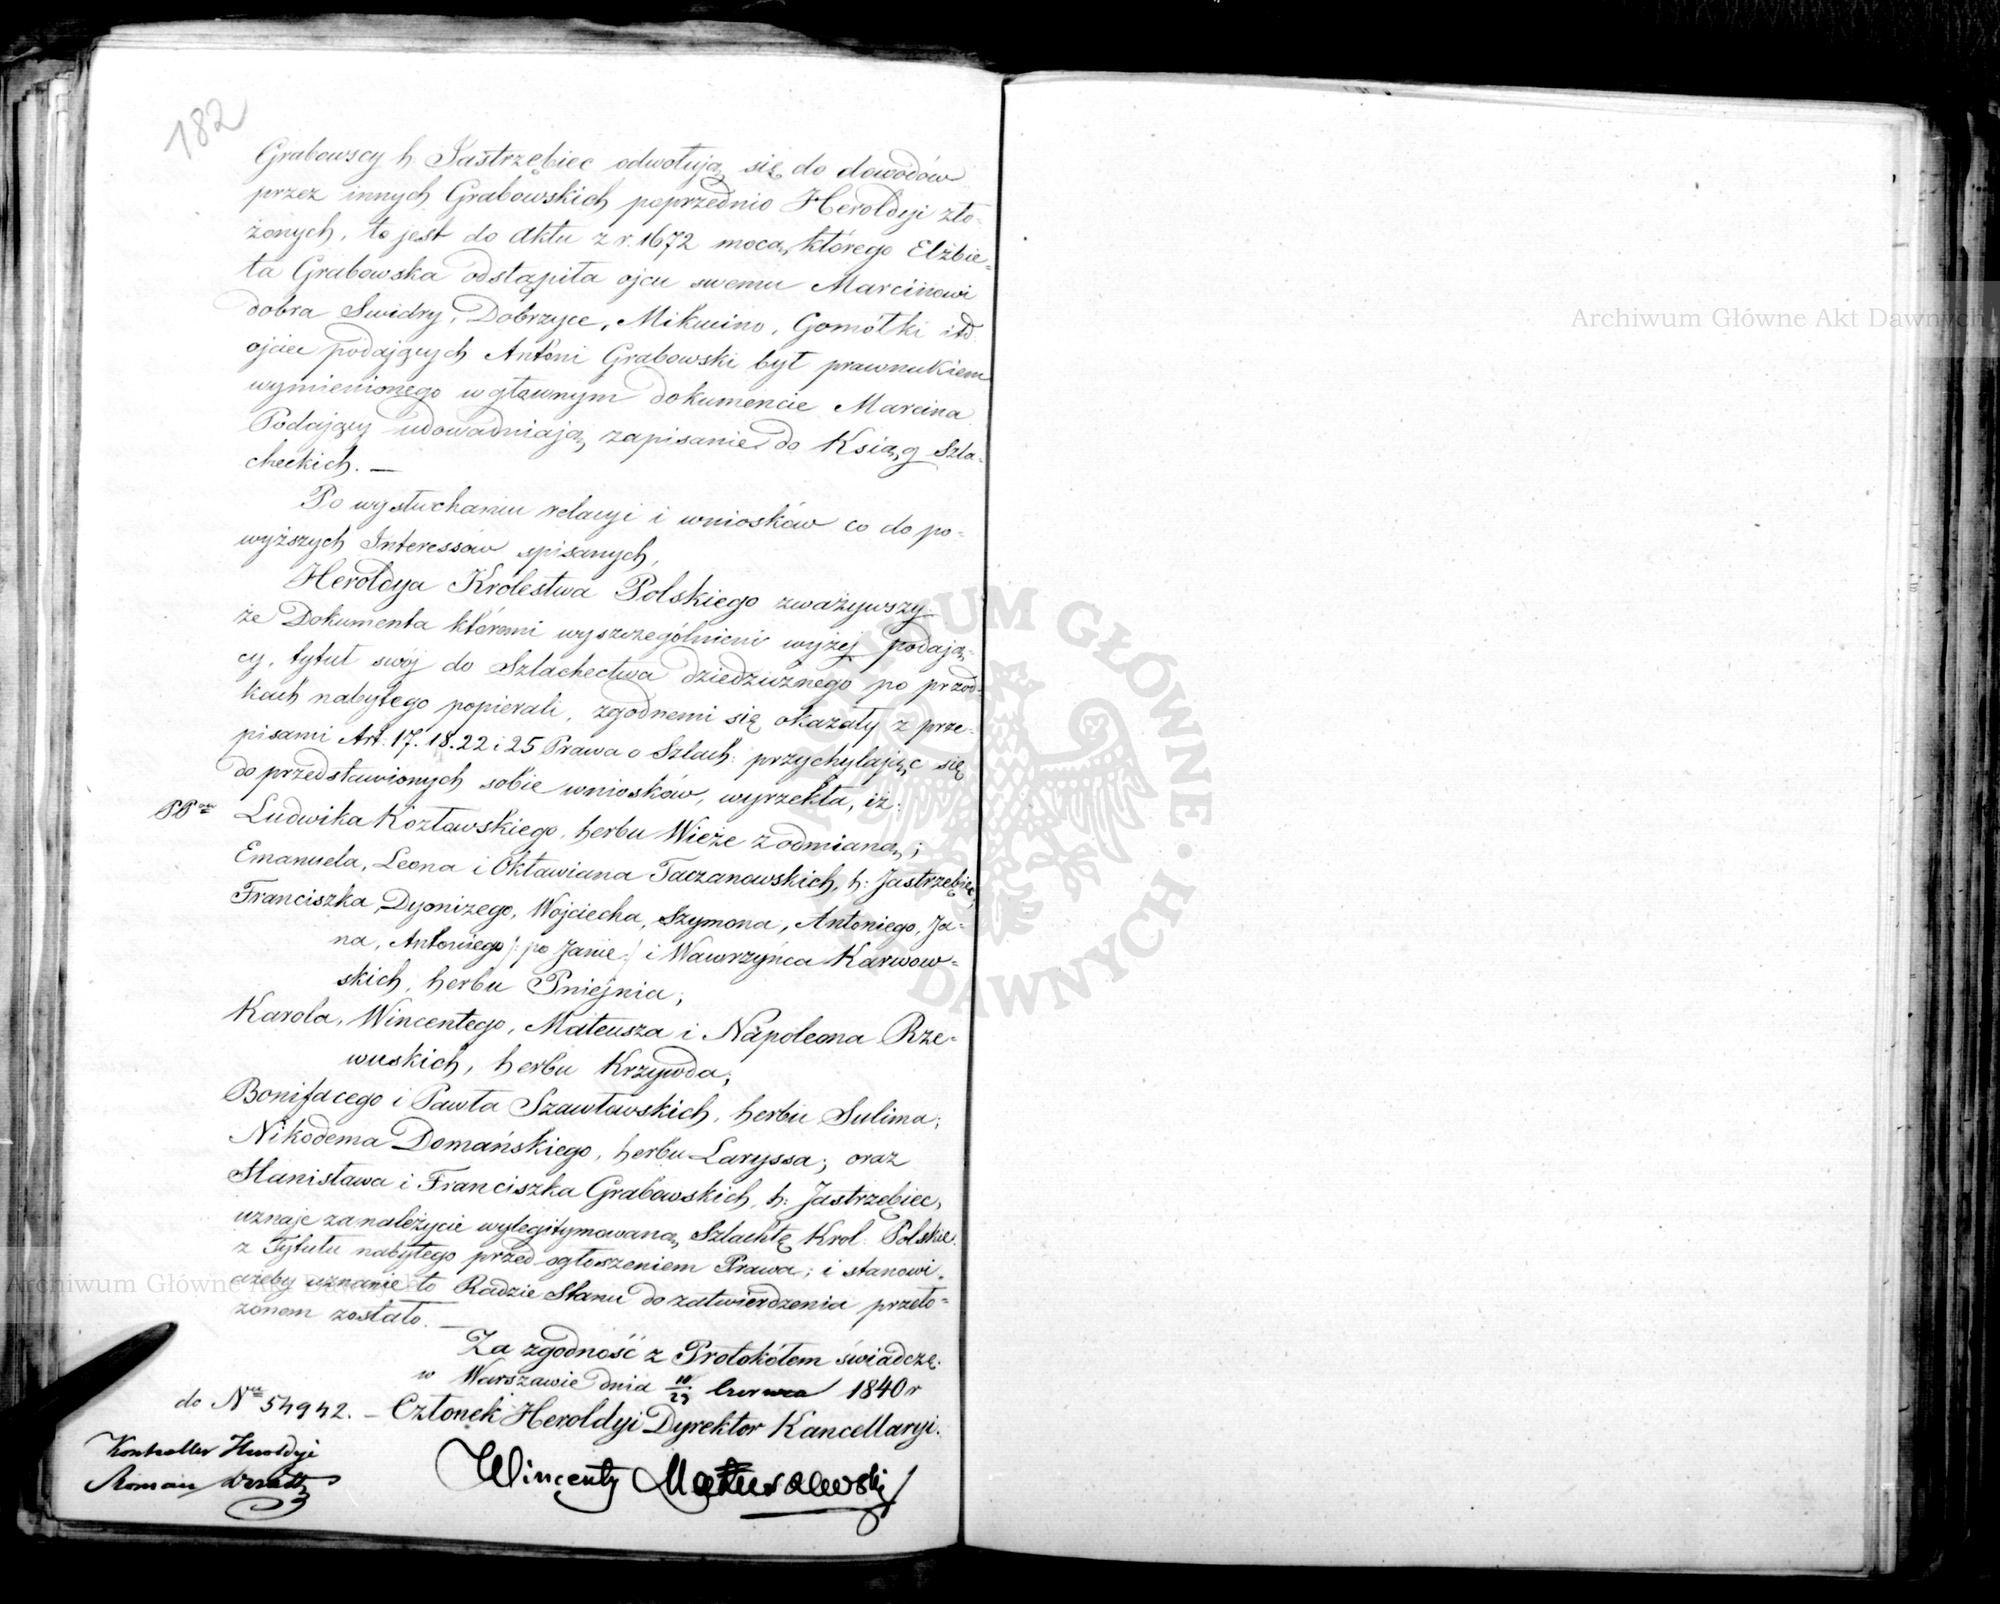 182
Grabowscy h. Jastrzębiec odwołują się do dowodów
przez innych Grabowskich poprzednio Heroldyi zło-
żonych, to jest do Aktu z r. 1672 mocą którego Elżbie-
ta Grabowska odstąpiła ojcu swemu Marcinowi
dobra Swidry, Dobrzyce, Mikucino, Gomółki itd
ojciec podających Antoni Grabowski był prawnukiem
wymienionego w głównym dokumencie Marcina
Podający udowadniają zapisanie do Ksiąg Szla-
checkich. —
Po wysłuchaniu relacyi i wniosków co do po-
wyższych Interessów spisanych,
Heroldya Królestwa Polskiego zważywszy:
że Dokumenta któremi wyszczególnieni wyżej podają-
cy, tytuł swój do Szlachectwa dziedzicznego po przod-
kach nabytego popierali, zgodnemi się okazały z prze-
pisami Art: 17. 18. 22 i 25 Prawa o Szlach: przychylając się
do przedstawionych sobie wniosków, wyrzekła, iż:
Ludwika Kozławskiego, herbu Wieże z odmianą;
Emanuela, Leona i Oktawiana Taczanowskich, h: Jastrzębiec,
Franciszka, Dyonizego, Wojciecha, Szymona, Antoniego, Ja-
na, Antoniego /: po Janie :/ i Wawrzyńca Karwow-
skich, herbu Pniejnia;
Karola, Wincentego, Mateusza i Napoleona Rze-
wuskich, herbu Krzywda;
Bonifacego i Pawła Szawławskich, herbu Sulima;
Nikodema Domańskiego, herbu Laryssa; oraz
Stanisława i Franciszka Grabowskich, h: Jastrzębiec,
uznaje za należycie wylegitymowaną Szlachtę Król. Polskie.
z Tytułu nabytego przed ogłoszeniem Prawa; i stanowi,
ażeby uznanie to Radzie Stanu do zatwierdzenia przeło-
żonem zostało. —
Za zgodność z Protokółem świadczę.
w Warszawie dnia Czerwca 1840 r
do Nru 54942. — Członek Heroldyi Dyrektor Kancellaryi.
Kontroller Heroldyi
Roman
Wincenty Matuszewski
Archiwum Główne Akt Dawnych
Archiwum Główne Akt Dawnych
ARCHIWUM GŁÓWNE AKT DAWNYCH